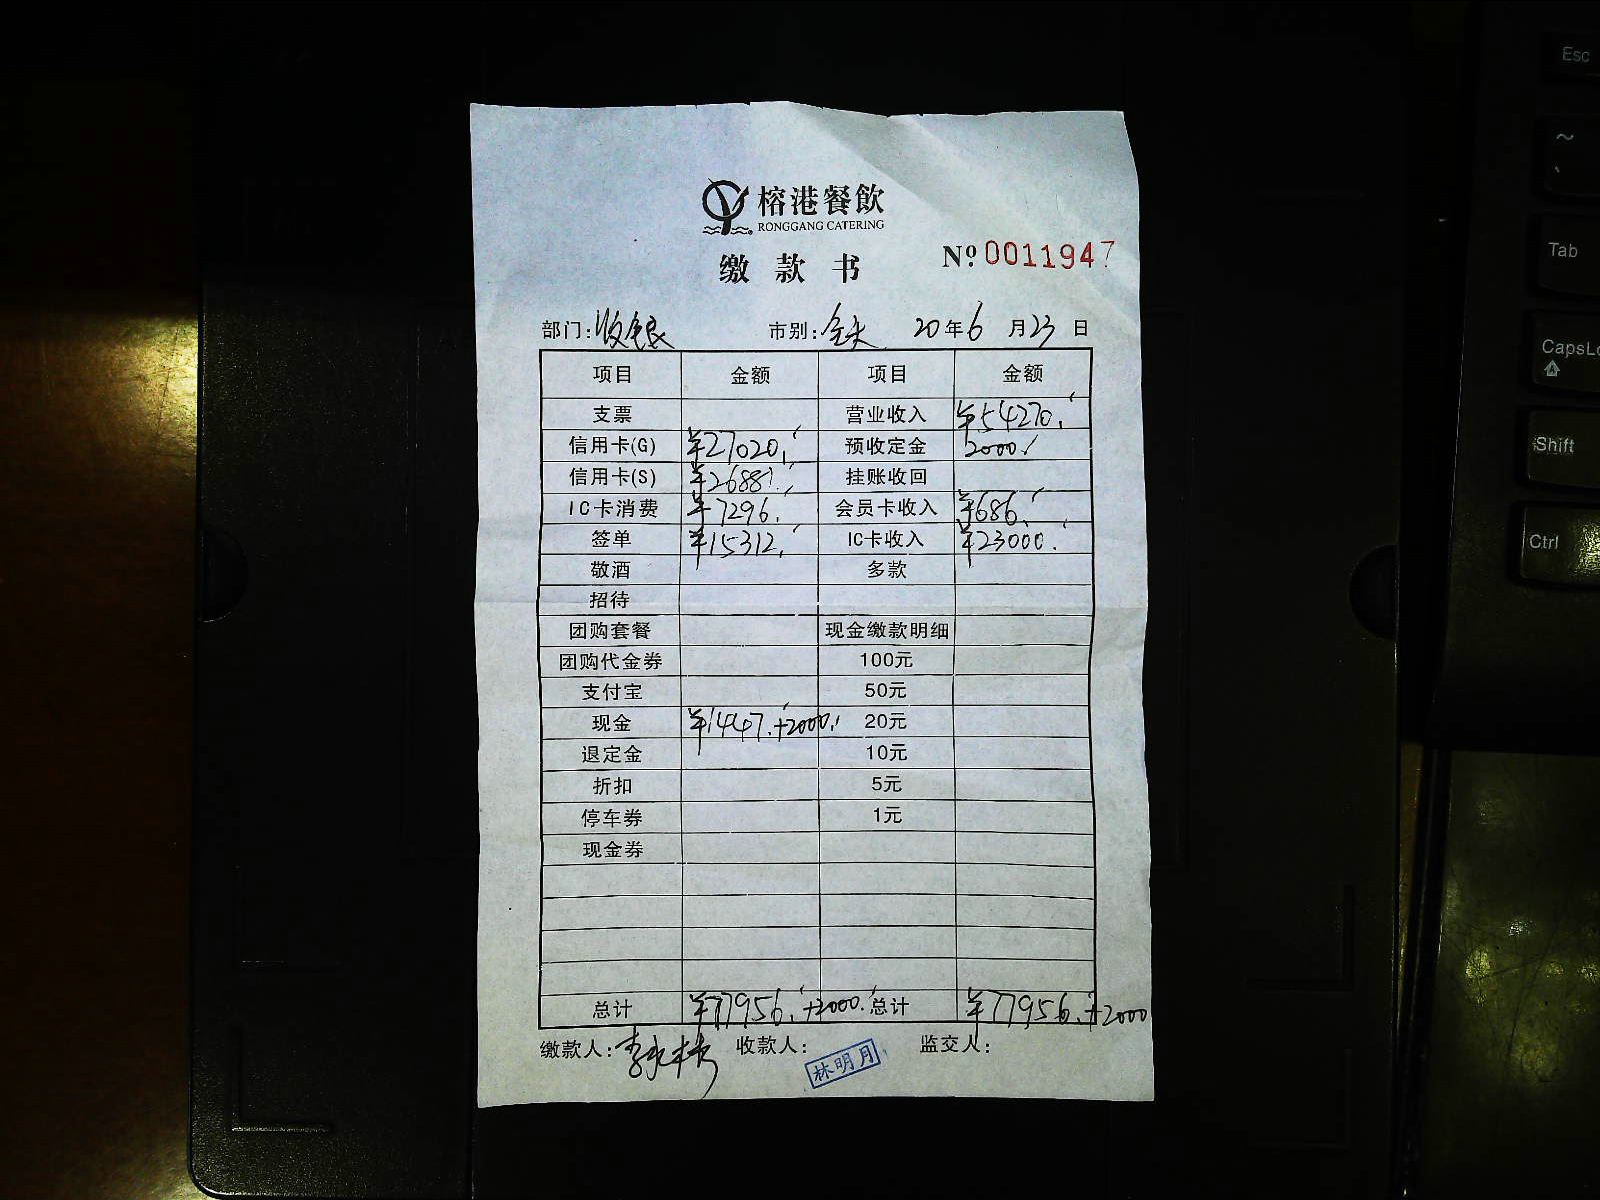 榕港餐飲
RONGGANG CATERING
缴款书
Nº 0011947
部门: 收银 市别: 全天 20年6月23日
项目 金额 项目 金额
支票 营业收入 ¥54270.
信用卡(G) ¥27020. 预收定金 2000.
信用卡(S) ¥26881. 挂账收回
IC卡消费 ¥7296. 会员卡收入 ¥686.
签单 ¥15312. IC卡收入 ¥23000.
敬酒 多款
招待
团购套餐 现金缴款明细
团购代金券 100元
支付宝 50元
现金 ¥1447.+2000. 20元
退定金 10元
折扣 5元
停车券 1元
现金券
总计 ¥77956.+2000. 总计 ¥77956.+2000
缴款人: 收款人: 林明月 监交人:
Esc
~
Tab
CapsLo
Shift
Ctrl